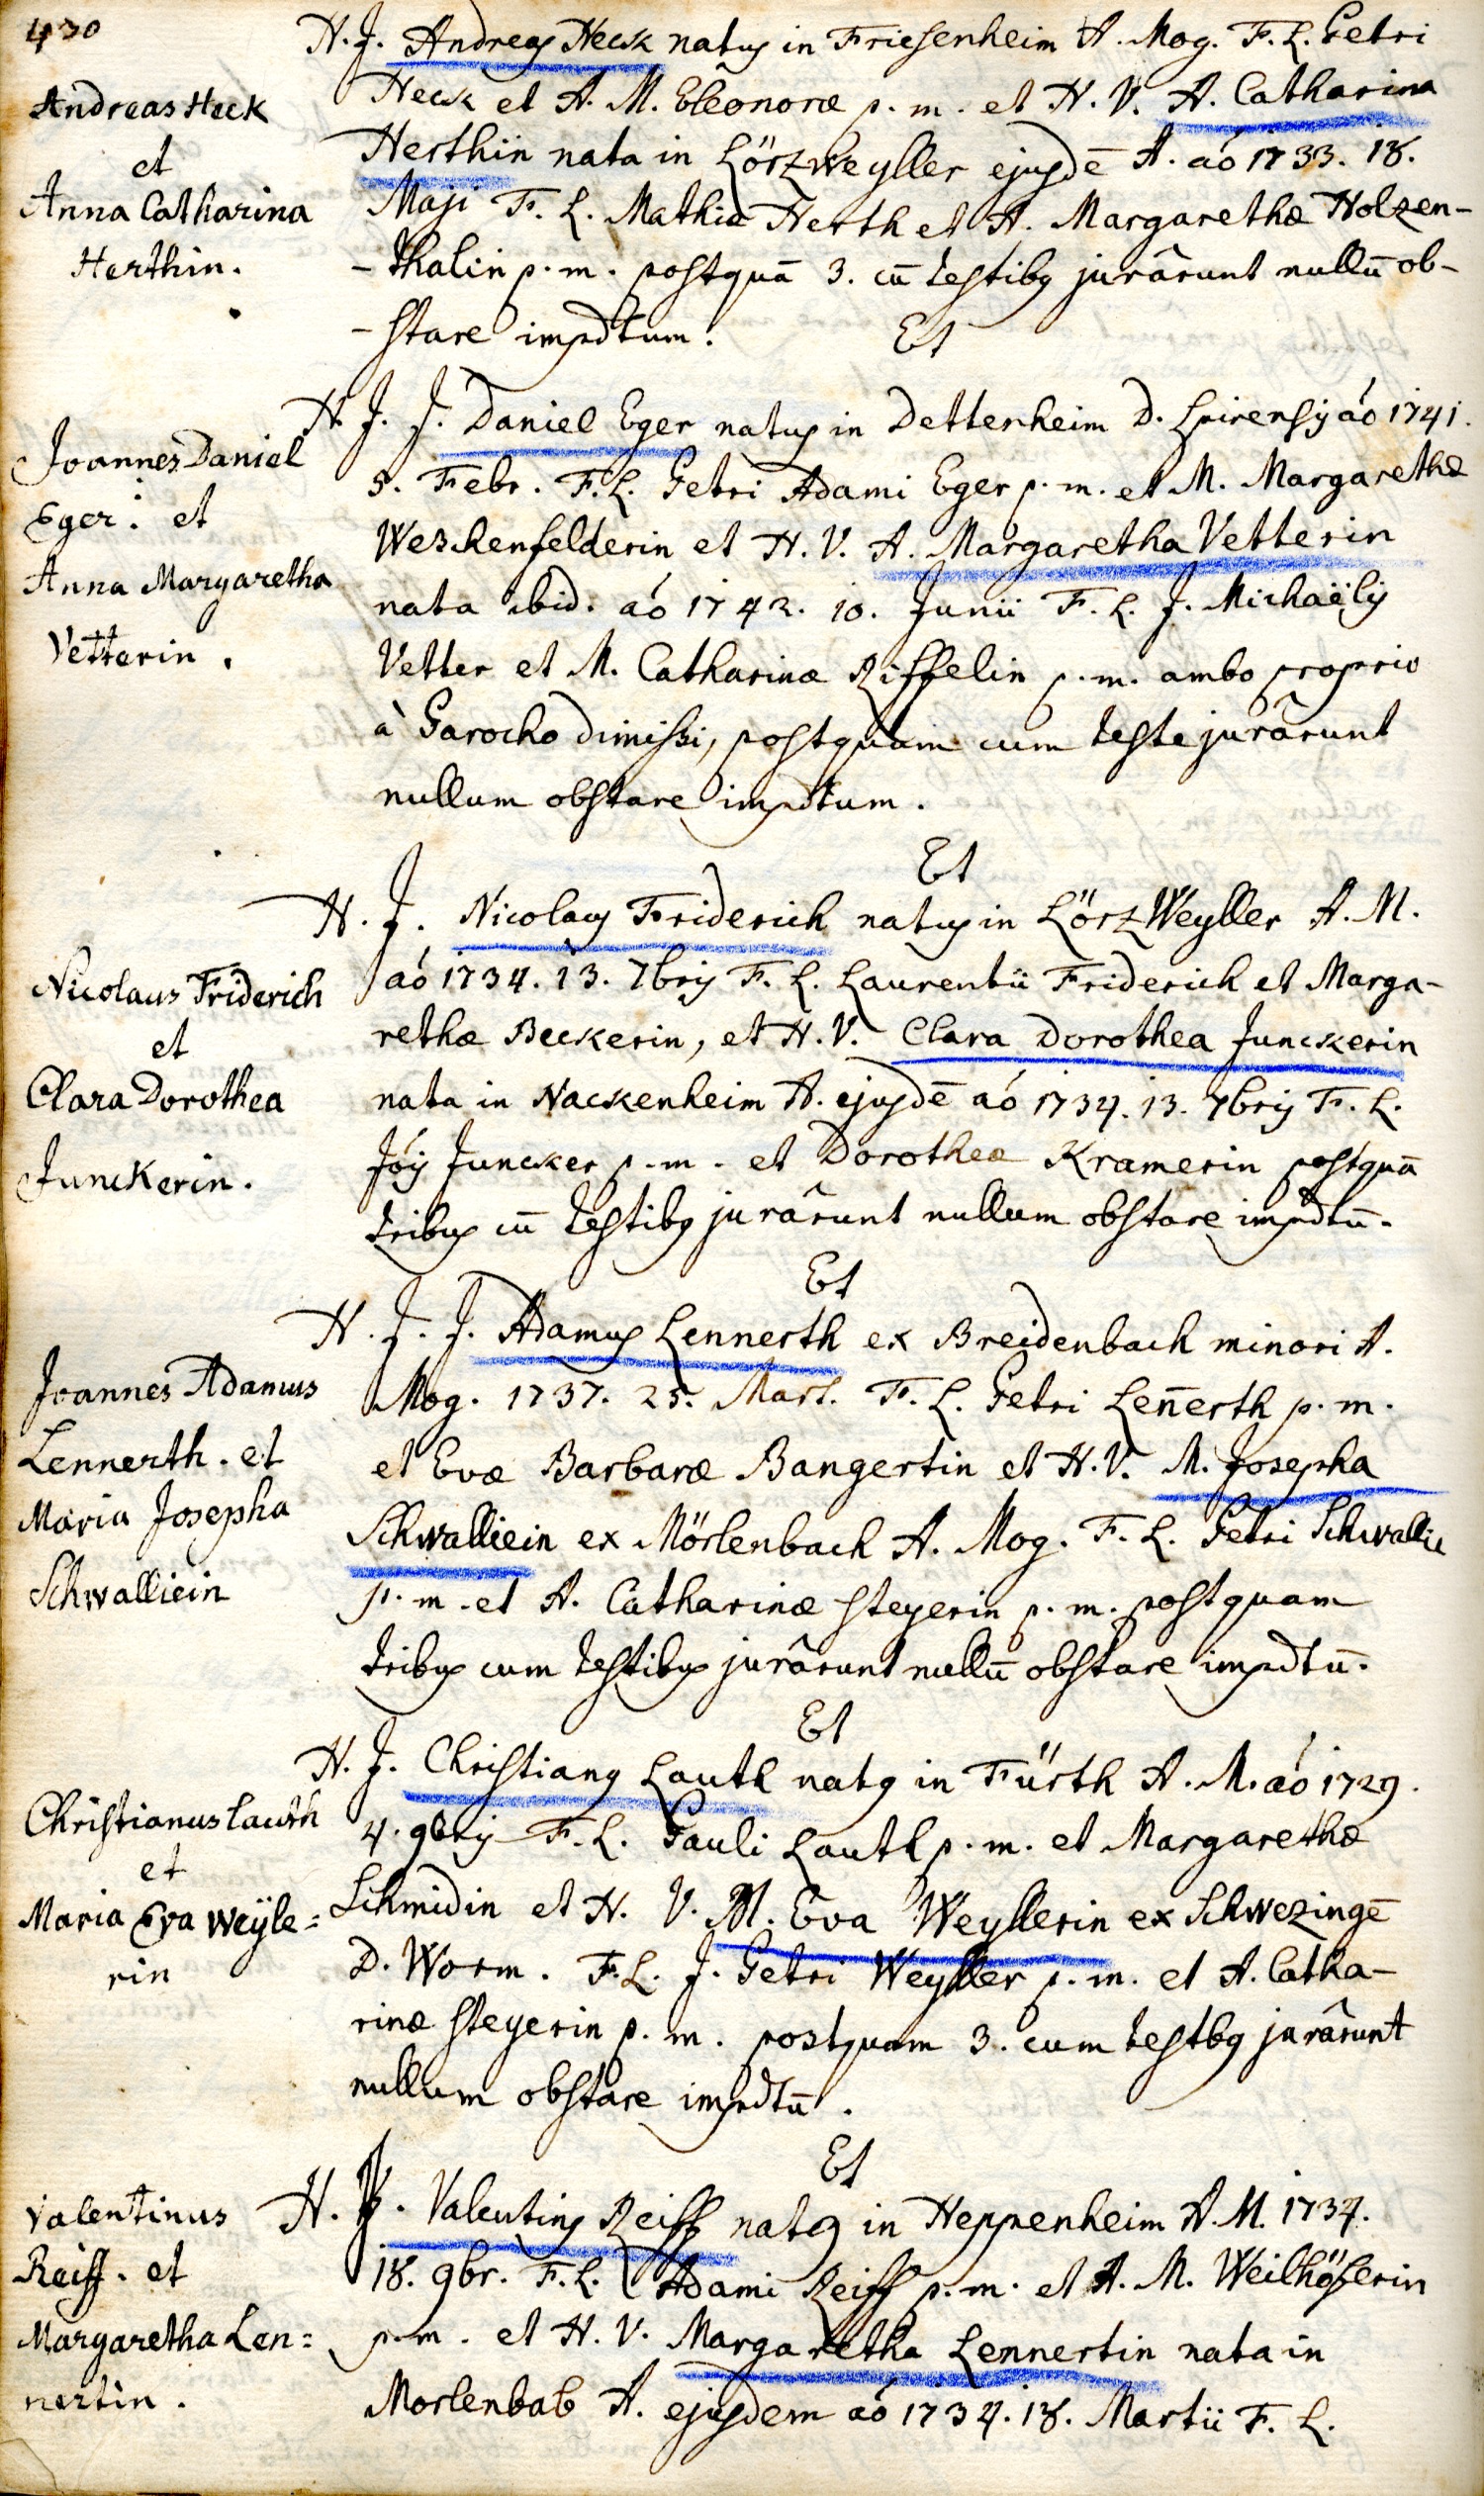 430
H. J. Andreas Heck natus in Friesenheim A. Mog. F. L. Petri
Andreas Heck
Heck et A. M. Eleonoræ p. m. et H. V. A. Catharina
et
Herthin nata in Lörzweyller ejusdē A. aó 1733. 18.
Anna Catharina
Maji F. L. Mathiæ Herth et A. Margarethæ Holzen-
Herthin.
-thalin p. m. postquā 3. cū testibus jurârunt nullū ob-
-stare impdtum.
Et
H. J. J. Daniel Eger natus in Dettenheim D. Spirensis aó 1741.
Joannes Daniel
5. Febr. F. L. Petri Adami Eger p. m. et M. Margarethæ
Eger. et
Weschenfelderin et H. V. A. Margaretha Vetterin
Anna Margaretha
nata ibid. aó 1742. 10. Junii F. L. J. Michaëlis
Vetterin.
Vetter et M. Catharinæ Riffelin p. m. ambo proprio
à Parocho dimissi, postquam cum teste jurârunt
nullum obstare impdtum.
Et
H. J. Nicolaus Friderich natus in LörzWeyller A. M.
Nicolaus Friderich
aó 1734. 13. 7bris F. L. Laurentii Friderich et Marga-
et
rethæ Beckerin, et H. V. Clara Dorothea Junckerin
Clara Dorothea
nata in Nackenheim A. ejusdē aó 1734. 13. 7bris F. L.
Junckerin.
Jóis Juncker p. m. et Dorotheæ Kramerin postquā
tribus cū testibus jurârunt nullum obstare impdtū.
Et
H. J. J. Adamus Lennerth ex Breidenbach minori A.
Joannes Adamus
Mog. 1737. 25. Mart. F. L. Petri Leñerth p. m.
Lennerth. et
et Evæ Barbaræ Bangertin et H. V. M. Josepha
Maria Josepha
Schwalliein ex Mörlenbach A. Mog. F. L. Petri Schwallie
Schwalliein
p. m. et A. Catharinæ Steyerin p. m. postquam
tribus cum testibus jurârunt nullū obstare impdtū.
Et
H. J. Christianus Lauth natus in Fürth A. M. aó 1729.
Christianus Lauth
4. 9bris F. L. Pauli Lauth p. m. et Margarethæ
et
Schmidin et H. V. M. Eva Weyllerin ex Schwezingē
Maria Eva weÿle=
D. Worm. F. L. J. Petri Weyller p. m. et A. Catha-
rin
rinæ Steyerin p. m. postquam 3. cum testbus jurârunt
nullum obstare impdtū.
Et
H. J. Valentinus Reiff natus in Heppenheim A. M. 1734.
Valentinus
18. 9br. F. L. Adami Reiff p. m. et A. M. Weilhöferin
Reiff. et
p. m. et H. V. Margaretha Lennertin nata in
Margaretha Len=
Morlenbab A. ejusdem aó 1734. 18. Martii F. L.
nertin.